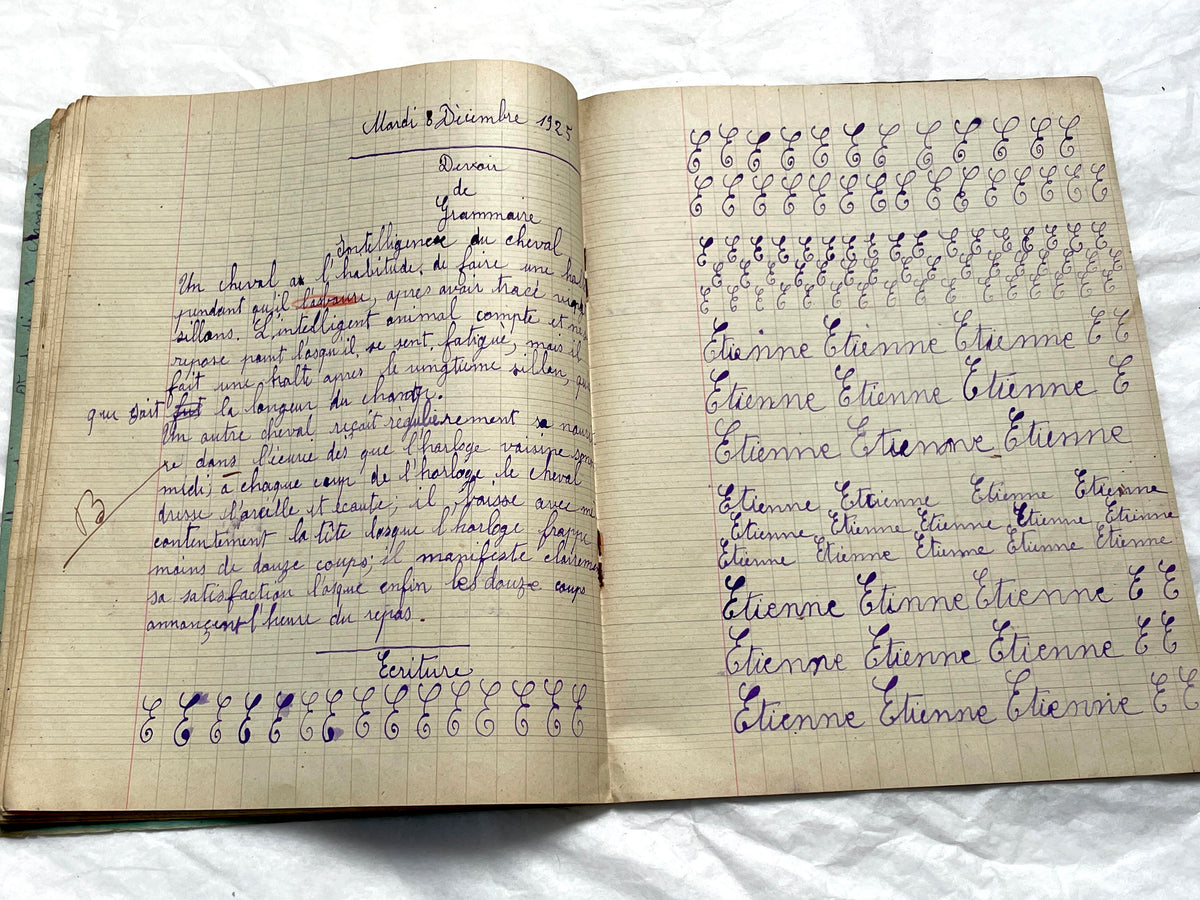 Mardi 8 Décembre 1925
Devoir
de
Grammaire
Intelligence du cheval
Un cheval a l'habitude, de faire une
pendant qu'il laboure, après avoir tracé
sillons. L'intelligent animal compte et ne
repose point losqu'il se sent fatigué, mais il
fait une halte après le vingtième sillon,
que soit fut la longeur du champ.
Un autre cheval reçoit régulièrement sa
re dans l'écurie dès que l'horloge voisine
midi; à chaque coup de l'horloge le cheval
dresse l'oreille et écoute; il baisse avec
contentement la tête losque l'horloge frappe
moins de douze coups; il manifeste
sa satisfaction losque enfin les douze coups
annonçent l'heure du repas.
B
Ecriture
E E E E E E E E E E E E E E
E E E E E E E E E E E
E E E E E E E E E E E E E E
E E E E E E E E E E E E E E E E
E E E E E E E E E E E E E E E
E E E E E E E E E E E E E E E
Etienne Etienne Etienne E E
Etienne Etienne Etienne E
Etienne Etienne Etienne
Etienne Etienne Etienne Etienne
Etienne Etienne Etienne Etienne Etienne
Etienne Etienne Etienne Etienne Etienne
Etienne Etinne Etienne E E
Etienne Etienne Etienne E E
Etienne Etienne Etienne E E